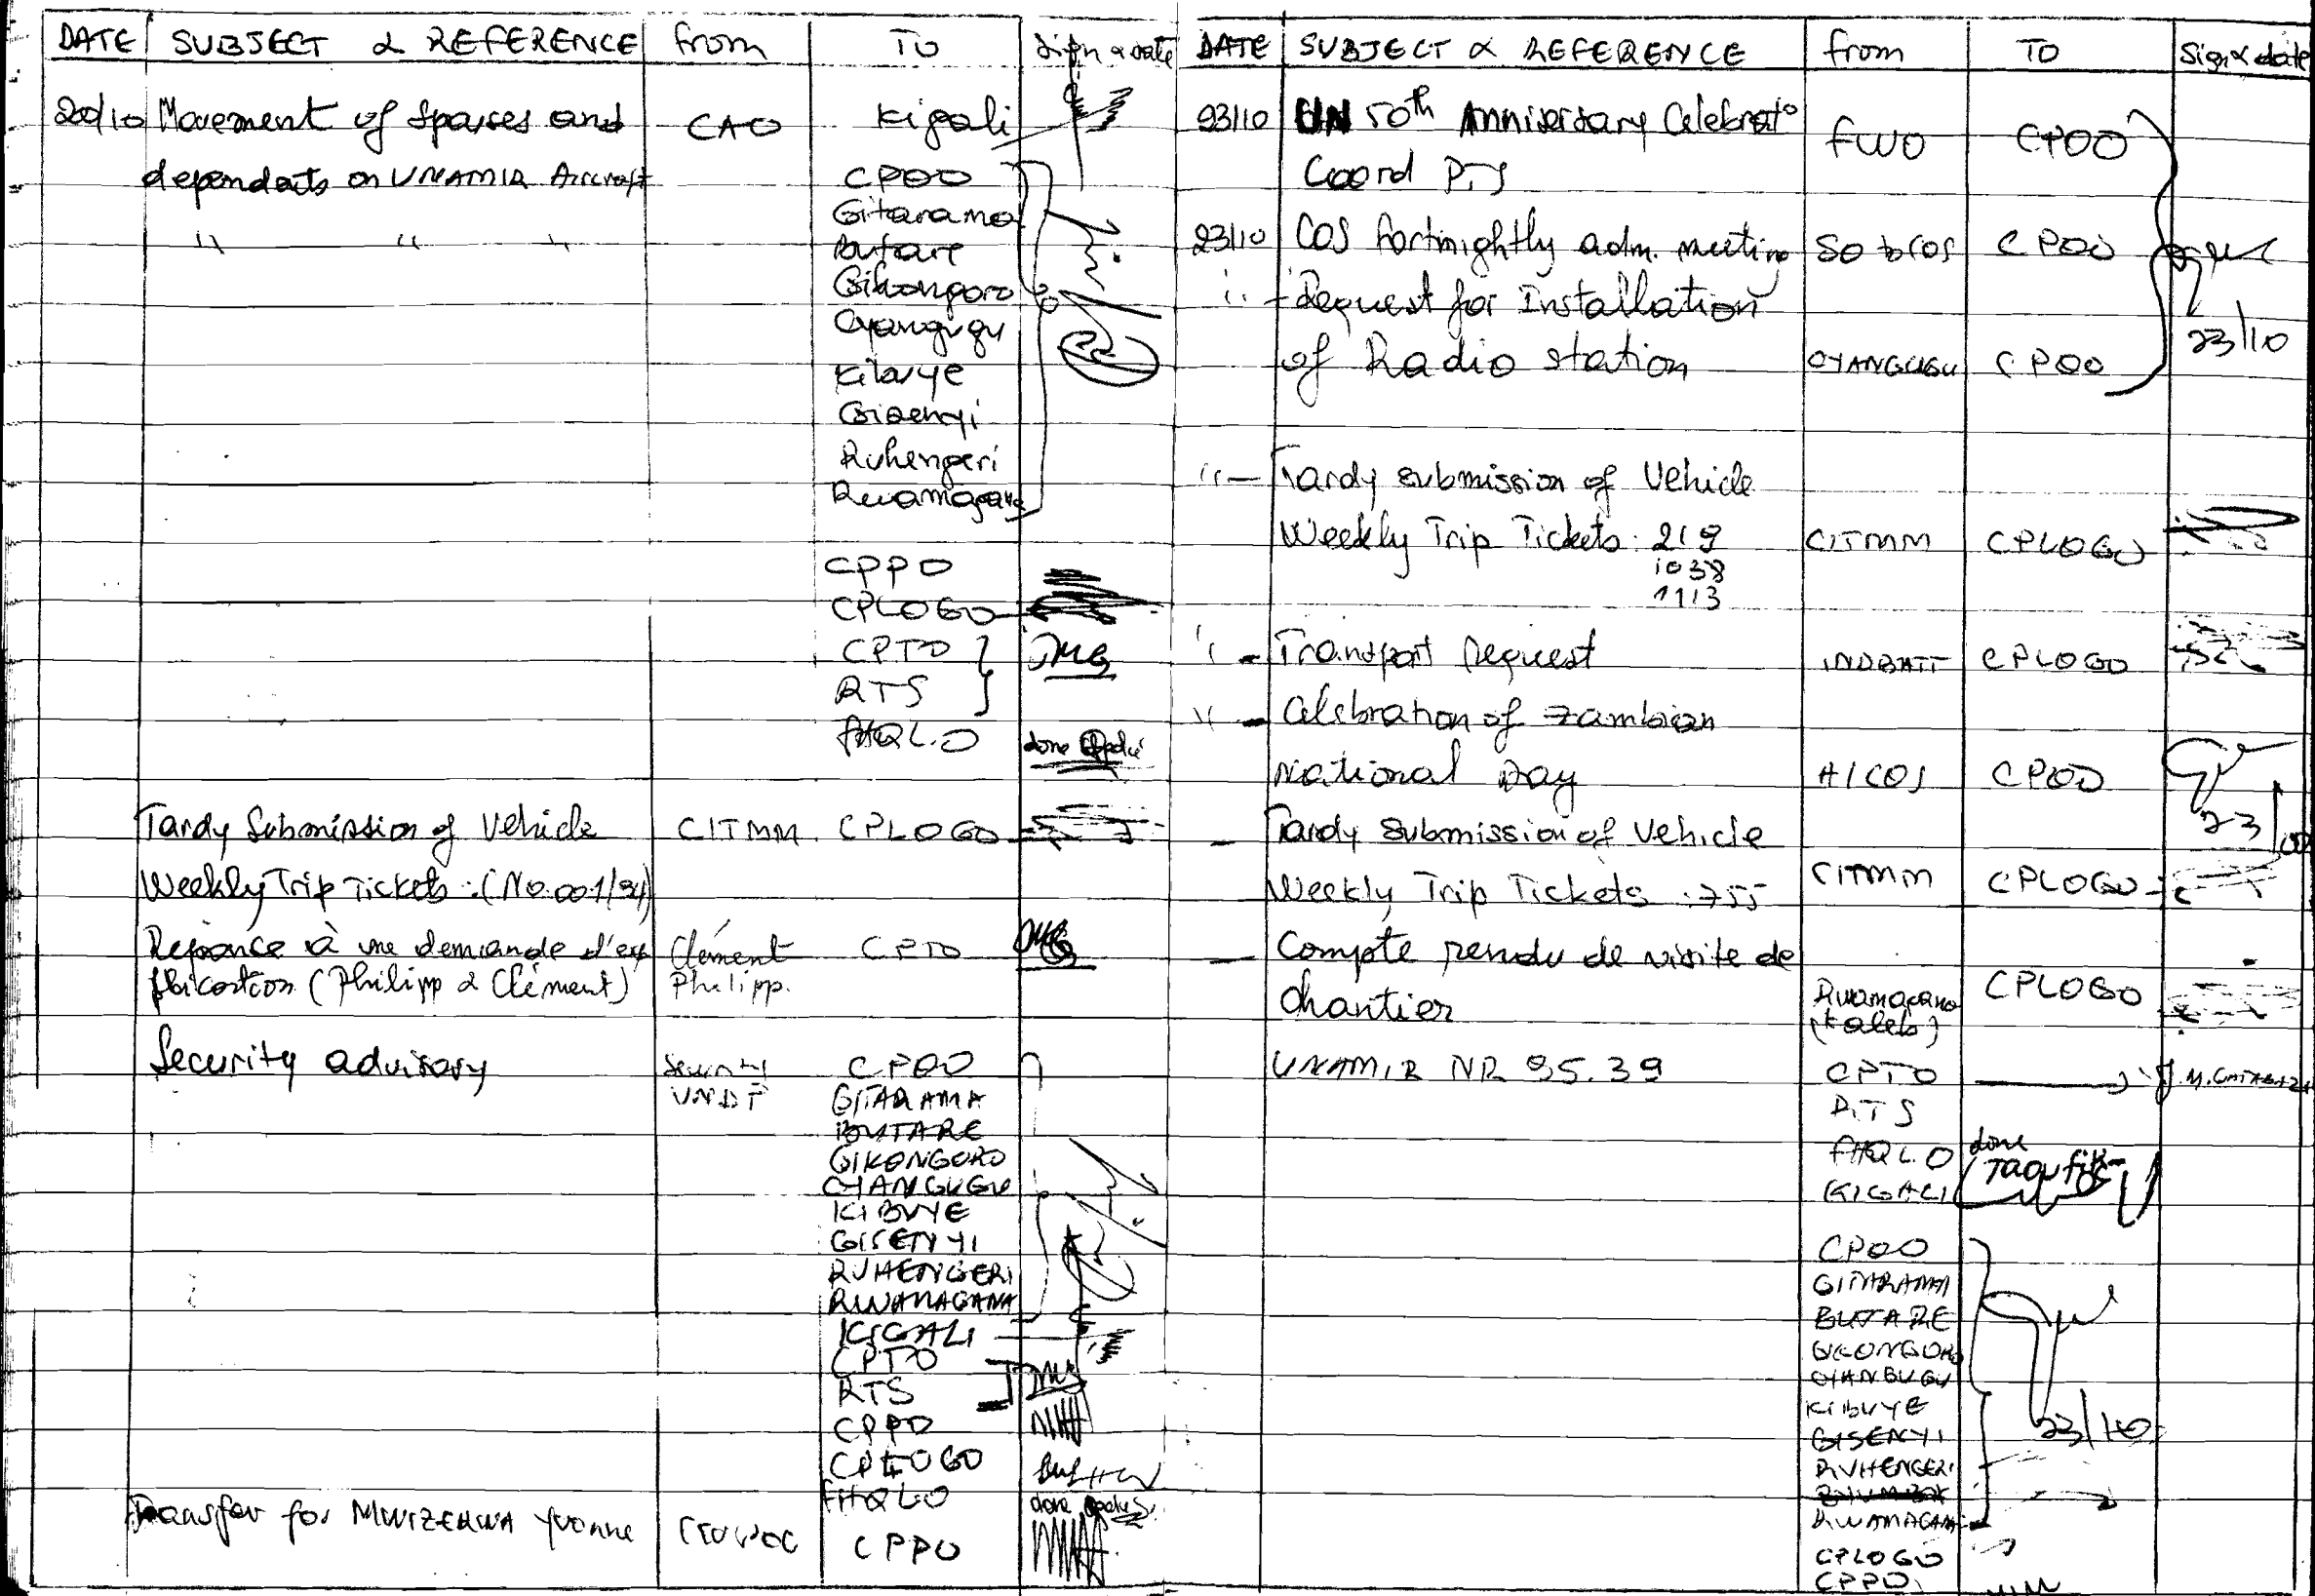 DATE SUBJECT & REFERENCE from TO Sign & date
20/10 Movement of Spouses and CAO Kigali
dependents on UNAMIR Aircraft CPOO
Gitarama
" " " Butare
Gikongoro
Cyangugu
Kibuye
Gisenyi
Ruhengeri
Rwamagana
CPPO
CPLOGO
CPTO
RTS
FHQLO done
Tardy Submission of Vehicle CITMM CPLOGO
Weekly Trip Tickets : (No.001/94)
Réponse à une demande d'ex Clément CPTO
plication (Philipp & Clément) Philipp.
Security advisory Security CPOO
UNDP GITARAMA
BUTARE
GIKONGORO
CYANGUGU
KIBUYE
GISENYI
RUHENGERI
RWAMAGANA
KIGALI
CPTO
RTS
CPPO
CPLOGO
FHQLO done
Transfer for MWIZERWA Yvonne CPPO
DATE SUBJECT & REFERENCE from TO Sign & date
23/10 UN 50th Anniversary Celebrat° FWO CPOO
Coord PTS
23/10 COS fortnightly adm. meeting SO to COS CPOO
" - Request for Installation
of Radio station CYANGUGU CPOO 23/10
" - Tardy submission of Vehicle
Weekly Trip Tickets : 219 CITMM CPLOGO
1038
1113
" - Transport Request INDBATT CPLOGO
" - Celebration of Zambian
National Day A/COS CPOO
23/10
- Tardy submission of Vehicle
Weekly Trip Tickets : 755 CITMM CPLOGO
- Compte rendu de visite de
chantier Rwamagana CPLOGO
(Kaleb)
UNAMIR NR 95.39 CPTO
RTS
FHQLO done
KIGALI Taoufik
CPOO
GITARAMA
BUTARE
GIKONGORO
CYANGUGU
KIBUYE
GISENYI 23/10
RUHENGERI
RWAMAGANA
CPLOGO
CPPO